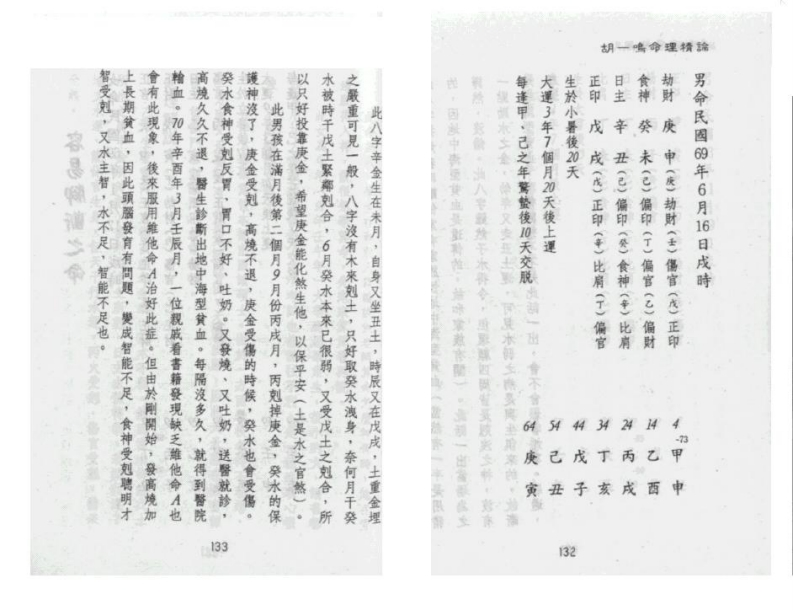 胡一鳴命理積論
男命民國69年6月16日戌時
劫財 庚 申(庚)劫財(壬)傷官(戊)正印
食神 癸 未(己)偏印(丁)偏官(乙)偏財
日主 辛 丑(己)偏印(癸)食神(辛)比肩
正印 戊 戌(戊)正印(辛)比肩(丁)偏官
生於小暑後20天
大運3年7個月20天後上運
每逢甲、己之年驚蟄後10天交脱
4 甲申
-73
14 乙酉
24 丙戌
34 丁亥
44 戊子
54 己丑
64 庚寅
132
此八字辛金生在未月,自身又坐丑土,時辰又在戊戌,土重金埋
之嚴重可見一般,八字沒有木來剋土,只好取癸水洩身,奈何月干癸
水被時干戊土緊鄰剋合,6月癸水本來已很弱,又受戊土之剋合,所
以只好投靠庚金,希望庚金能化煞生他,以保平安(土是水之官煞)。
此男孩在滿月後第二個月9月份丙戌月,丙剋掉庚金,癸水的保
護神沒了,庚金受剋,高燒不退,庚金受傷的時候,癸水也會受傷。
癸水食神受剋反胃、胃口不好、吐奶。又發燒、又吐奶,送醫就診,
高燒久久不退,醫生診斷出地中海型貧血。每隔沒多久,就得到醫院
輸血。70年辛酉年3月壬辰月,一位親戚看書籍發現缺乏維他命A也
會有此現象,後來服用維他命A治好此症。但由於剛開始,發高燒加
上長期貧血,因此頭腦發育有問題,變成智能不足,食神受剋聰明才
智受剋,又水主智,水不足,智能不足也。
133